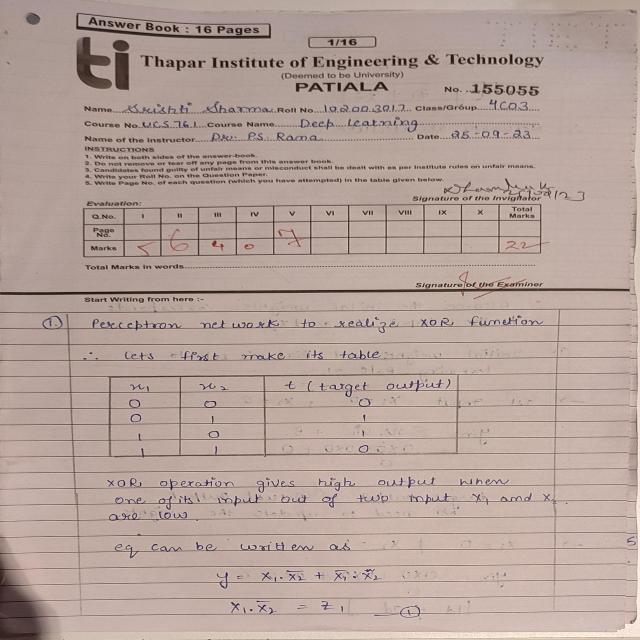 Answer Book : 16 Pages
1/16
ti
Thapar Institute of Engineering & Technology
(Deemed to be University)
PATIALA
No. 155055
Name Srishti Sharma Roll No. 102003017 Class/Group 4CO3
Course No. UCS761 Course Name Deep Learning
Name of the Instructor Dr. P.S. Rana Date 25-09-23
INSTRUCTIONS
1. Write on both sides of the answer-book.
2. Do not remove or tear off any page from this answer book.
3. Candidates found guilty of unfair means or misconduct shall be dealt with as per Institute rules on unfair means.
4. Write your Roll No. on the Question Paper.
5. Write Page No. of each question (which you have attempted) in the table given below.
Signature of the Invigilator
Evaluation:
Q.No. I II III IV V VI VII VIII IX X Total Marks
Page No.
Marks 5 6 4 0 7 22
Total Marks in words
Signature of the Examiner
Start Writing from here :-
1. Perceptron network to realize XOR function
∴ lets first make its table
x1 x2 t (target output)
0 0 0
0 1 1
1 0 1
1 1 0
XOR operation gives high output when
one of its input out of two input x1 and x2
are low.
eq can be written as
5
y = x1.x̄2 + x̄1.x2
x1.x̄2 = z1 — ①